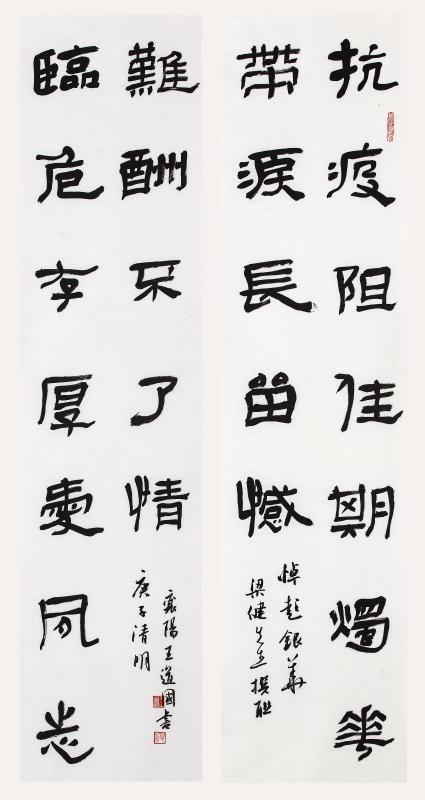 抗疫阻佳期燭花
帶淚長留憾
悼彭銀華
梁健先生撰聯
臨危存厚愛夙志
難酬不了情
庚子清明
襄陽王道國書